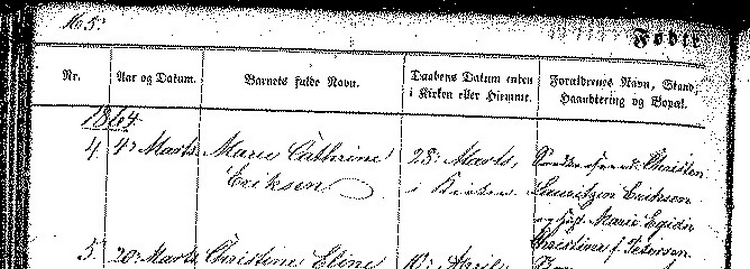 No 5.
Fødte
Nr.
Aar og Datum.
Barnets fulde Navn.
Daabens Datum enten
i Kirken eller Hiemme.
Forældrenes Navn, Stand,
Haandtering og Bopæl.
1864.
4.
4de Marts
Marie Cathrine
Eriksen
28: Marts,
i Kirken
Christen
Lauritzen Eriksen
og Hust. Marie Egidia
Christine f. Petersen
5.
20: Marts
Christine Eline
10: April